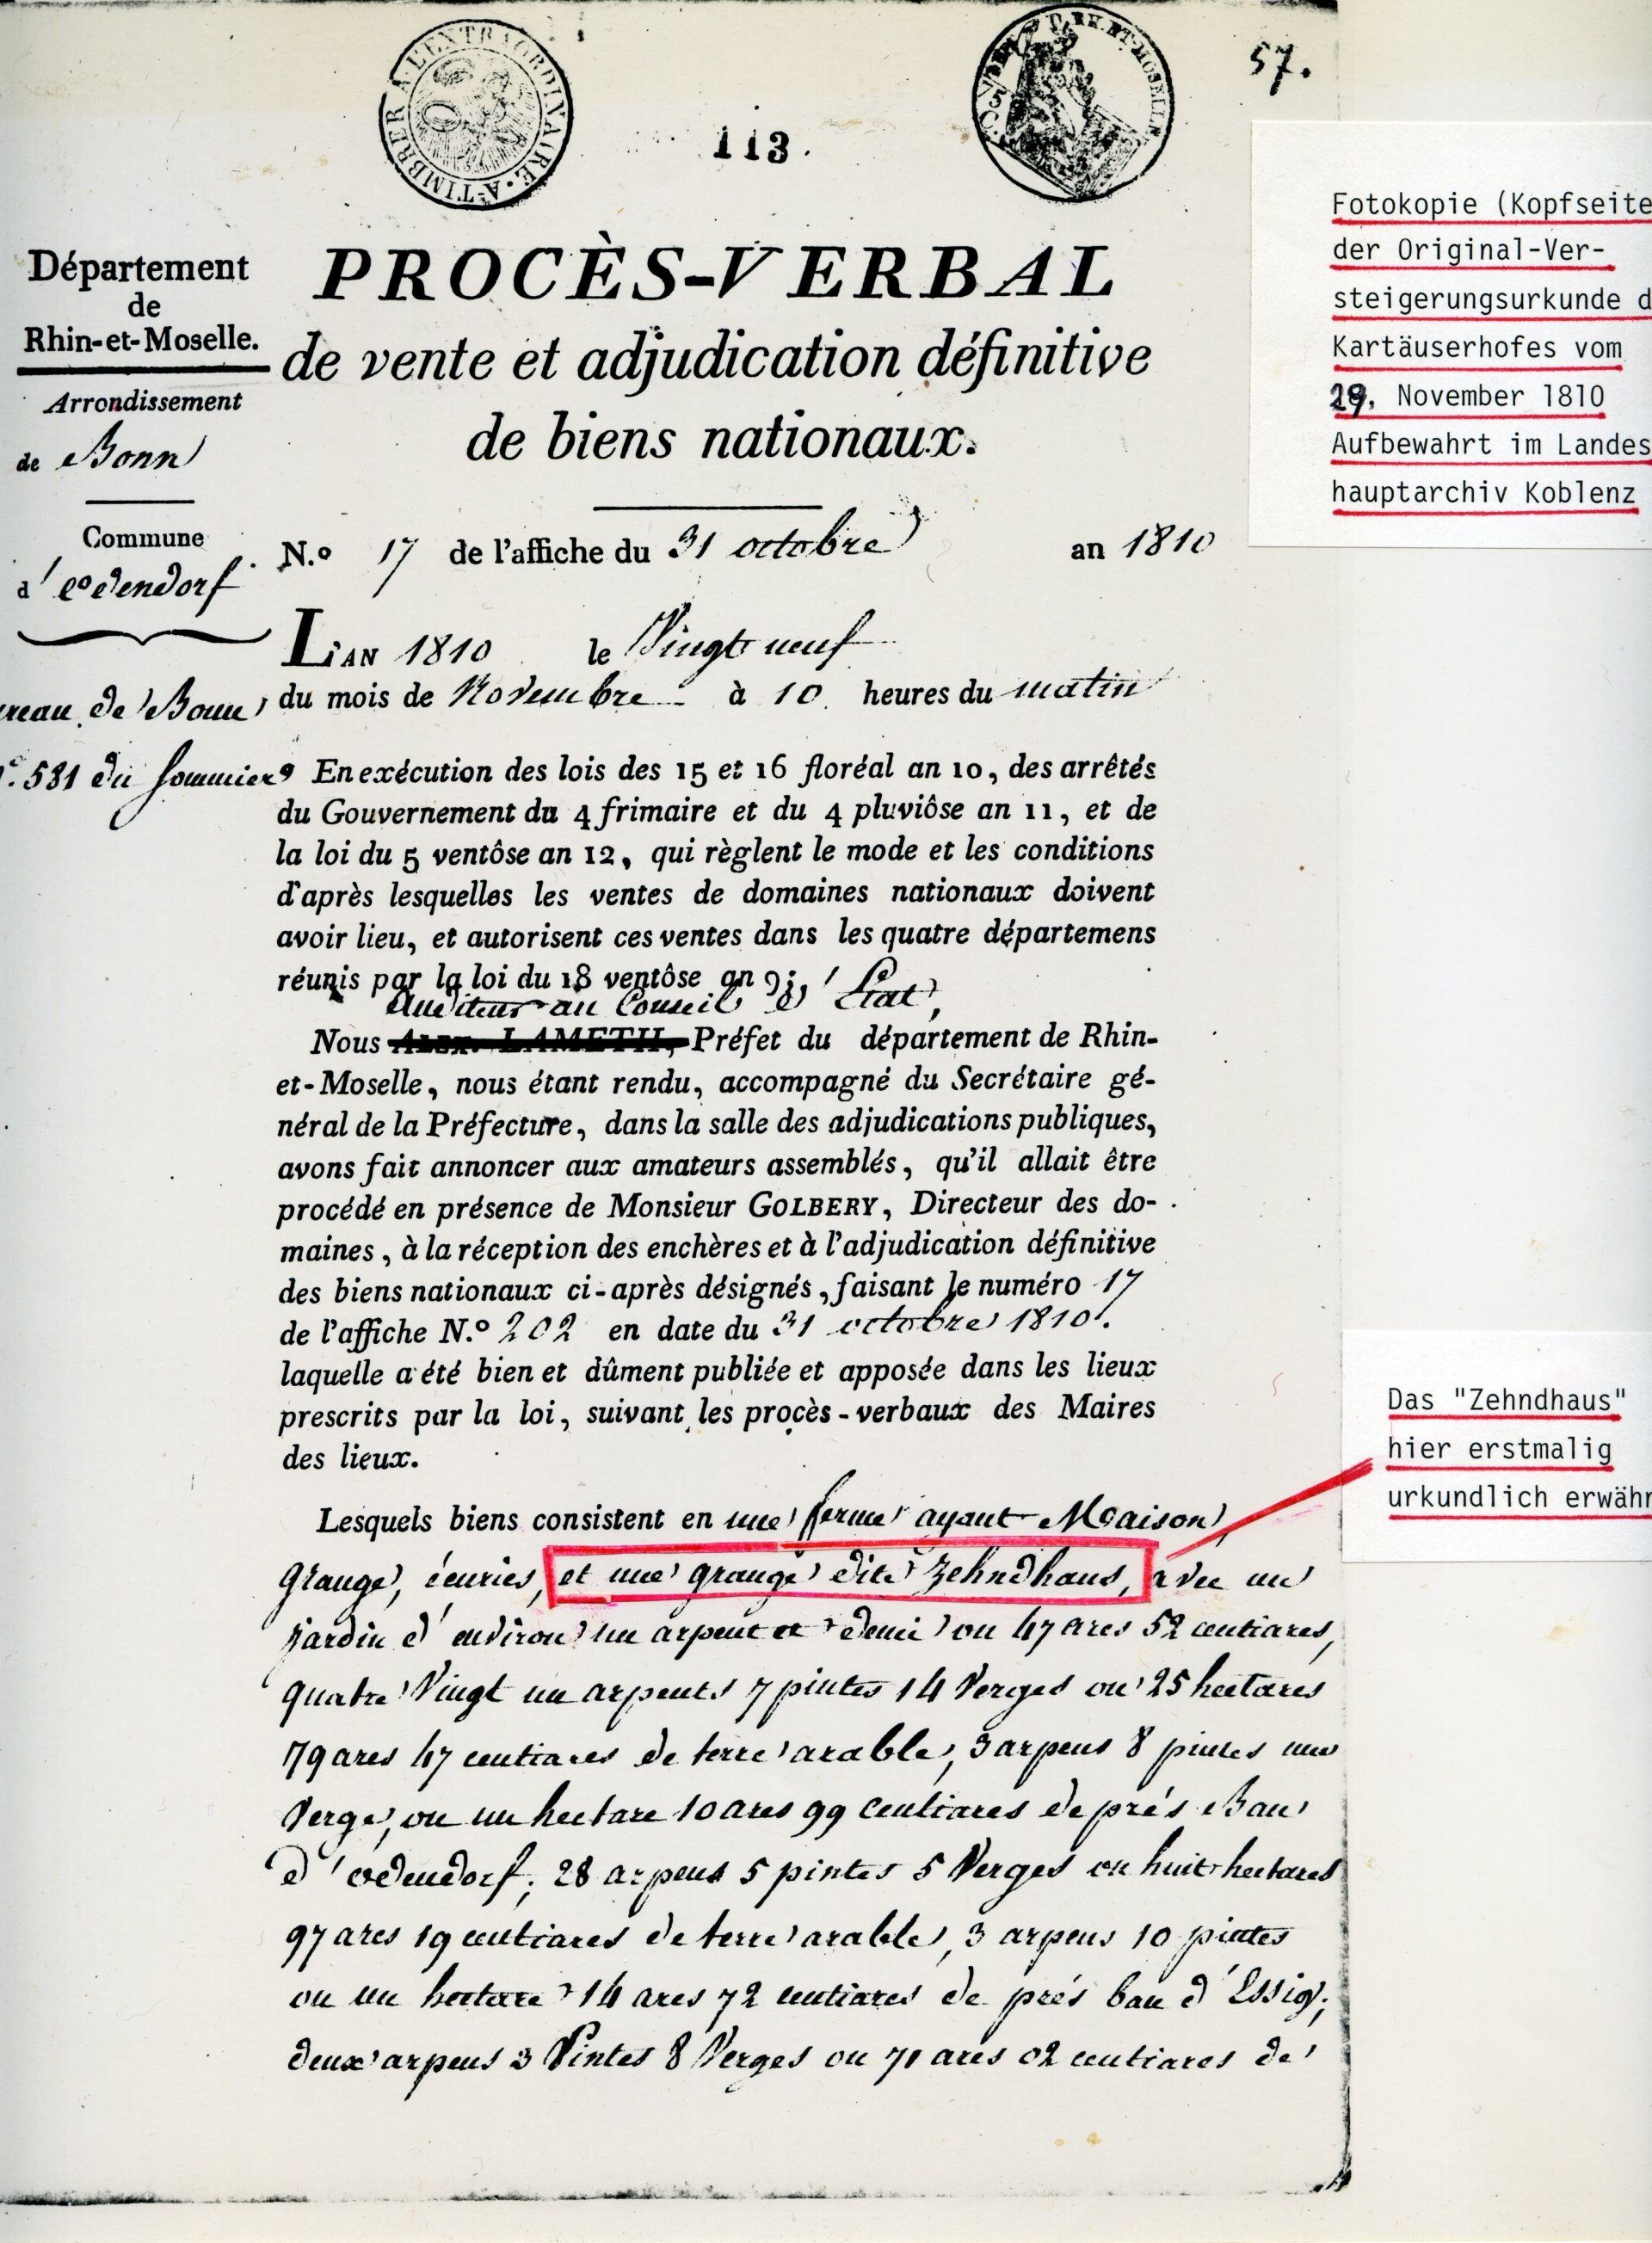 TIMBRER A L'EXTRAORDINAIRE
57.
113.
Département
de
Rhin-et-Moselle.
Arrondissement
de Bonn
Commune
d'Oedendorf
de Bonn
581 du Sommier
PROCÈS-VERBAL
de vente et adjudication définitive
de biens nationaux.
N.o 17 de l'affiche du 31 octobre an 1810
L'AN 1810 le Vingt neuf
du mois de Novembre à 10 heures du matin
En exécution des lois des 15 et 16 floréal an 10, des arrêtés
du Gouvernement du 4 frimaire et du 4 pluviôse an 11, et de
la loi du 5 ventôse an 12, qui règlent le mode et les conditions
d'après lesquelles les ventes de domaines nationaux doivent
avoir lieu, et autorisent ces ventes dans les quatre départemens
réunis par la loi du 18 ventôse an 9;
Auditeur au Conseil d'Etat,
Nous ALEX. LAMETH, Préfet du département de Rhin-
et-Moselle, nous étant rendu, accompagné du Secrétaire gé-
néral de la Préfecture, dans la salle des adjudications publiques,
avons fait annoncer aux amateurs assemblés, qu'il allait être
procédé en présence de Monsieur GOLBERY, Directeur des do-
maines, à la réception des enchères et à l'adjudication définitive
des biens nationaux ci-après désignés, faisant le numéro 17
de l'affiche N.o 202 en date du 31 octobre 1810.
laquelle a été bien et dûment publiée et apposée dans les lieux
prescrits par la loi, suivant les procès-verbaux des Maires
des lieux.
Lesquels biens consistent en une ferme ayant Maison,
grange, écuries, et une grange dite Zehndhaus, avec un
jardin d'environ un arpent et demi ou 47 ares 52 centiares,
quatre Vingt un arpents 7 pintes 14 Verges ou 25 hectares
79 ares 47 centiares de terre arable, 3 arpens 8 pintes une
Verge, ou un hectare 10 ares 99 centiares de prés Ban
d'oedendorf; 28 arpens 5 pintes 5 Verges ou huit hectares
97 ares 19 centiares de terre arable, 3 arpens 10 pintes
ou un hectare 14 ares 72 centiares de prés ban d'Essig;
deux arpens 3 Pintes 8 Verges ou 71 ares 02 centiares de
Fotokopie (Kopfseite
der Original-Ver-
steigerungsurkunde d
Kartäuserhofes vom
29. November 1810
Aufbewahrt im Landes
hauptarchiv Koblenz
Das "Zehndhaus"
hier erstmalig
urkundlich erwähn